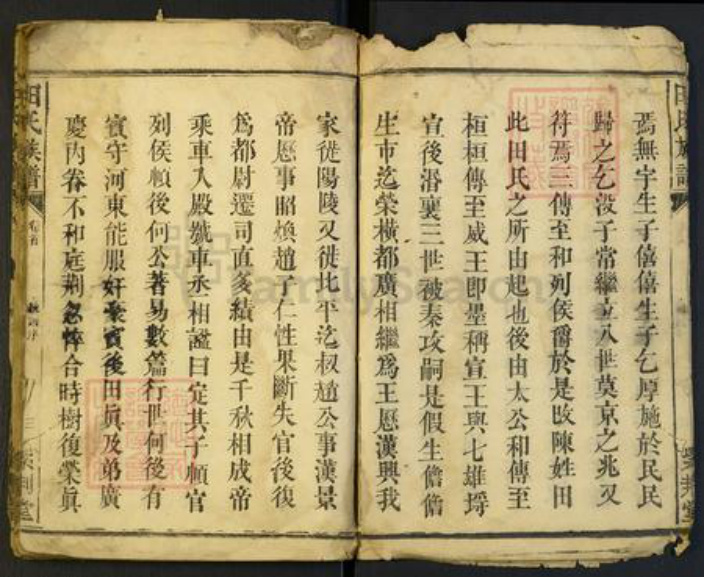 焉無宇生子僖僖生子乞厚施於民民
歸之乞沒子常繼立八世莫京之兆又
符焉三傳至和列侯爵於是改陳姓田
此田氏之所由起也後由太公和傳至
桓桓傳至威王即墨稱宣王與七雄埓
宣後湣襄三世被秦攻嗣是假生儋儋
生市迄榮橫都廣相繼爲王歷漢興我
田氏族譜
紫荆堂
家徙陽陵又徙北平迄叔趙公事漢景
帝歷事昭煥趙子仁性果斷失官後復
爲都尉遷司直爰績由是千秋相成帝
乘車入殿號車丞相諡曰定其子順官
列侯順後何公著易數篇行世何後有
賓守河東能服奸豪賓後田眞及弟廣
慶內眷不和庭荆忽悴合時樹復榮眞
田氏族譜
卷首
三
紫荆堂
FamilySearch